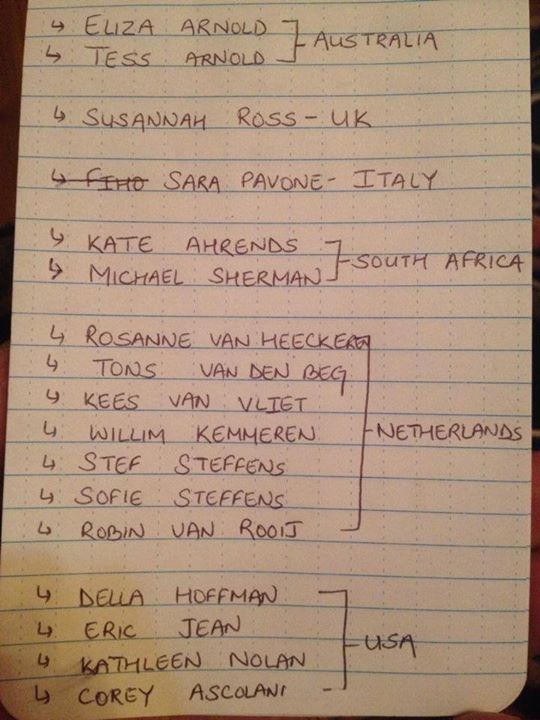 ↳ ELIZA ARNOLD
↳ TESS ARNOLD
AUSTRALIA
↳ SUSANNAH ROSS - UK
↳ FIHO SARA PAVONE - ITALY
↳ KATE AHRENDS
↳ MICHAEL SHERMAN
SOUTH AFRICA
↳ ROSANNE VAN HEECKEREN
↳ TONS VAN DEN BEG
↳ KEES VAN VLIET
↳ WILLIM KEMMEREN
NETHERLANDS
↳ STEF STEFFENS
↳ SOFIE STEFFENS
↳ ROBIN VAN ROOIJ
↳ DELLA HOFFMAN
↳ ERIC JEAN
USA
↳ KATHLEEN NOLAN
↳ COREY ASCOLANI